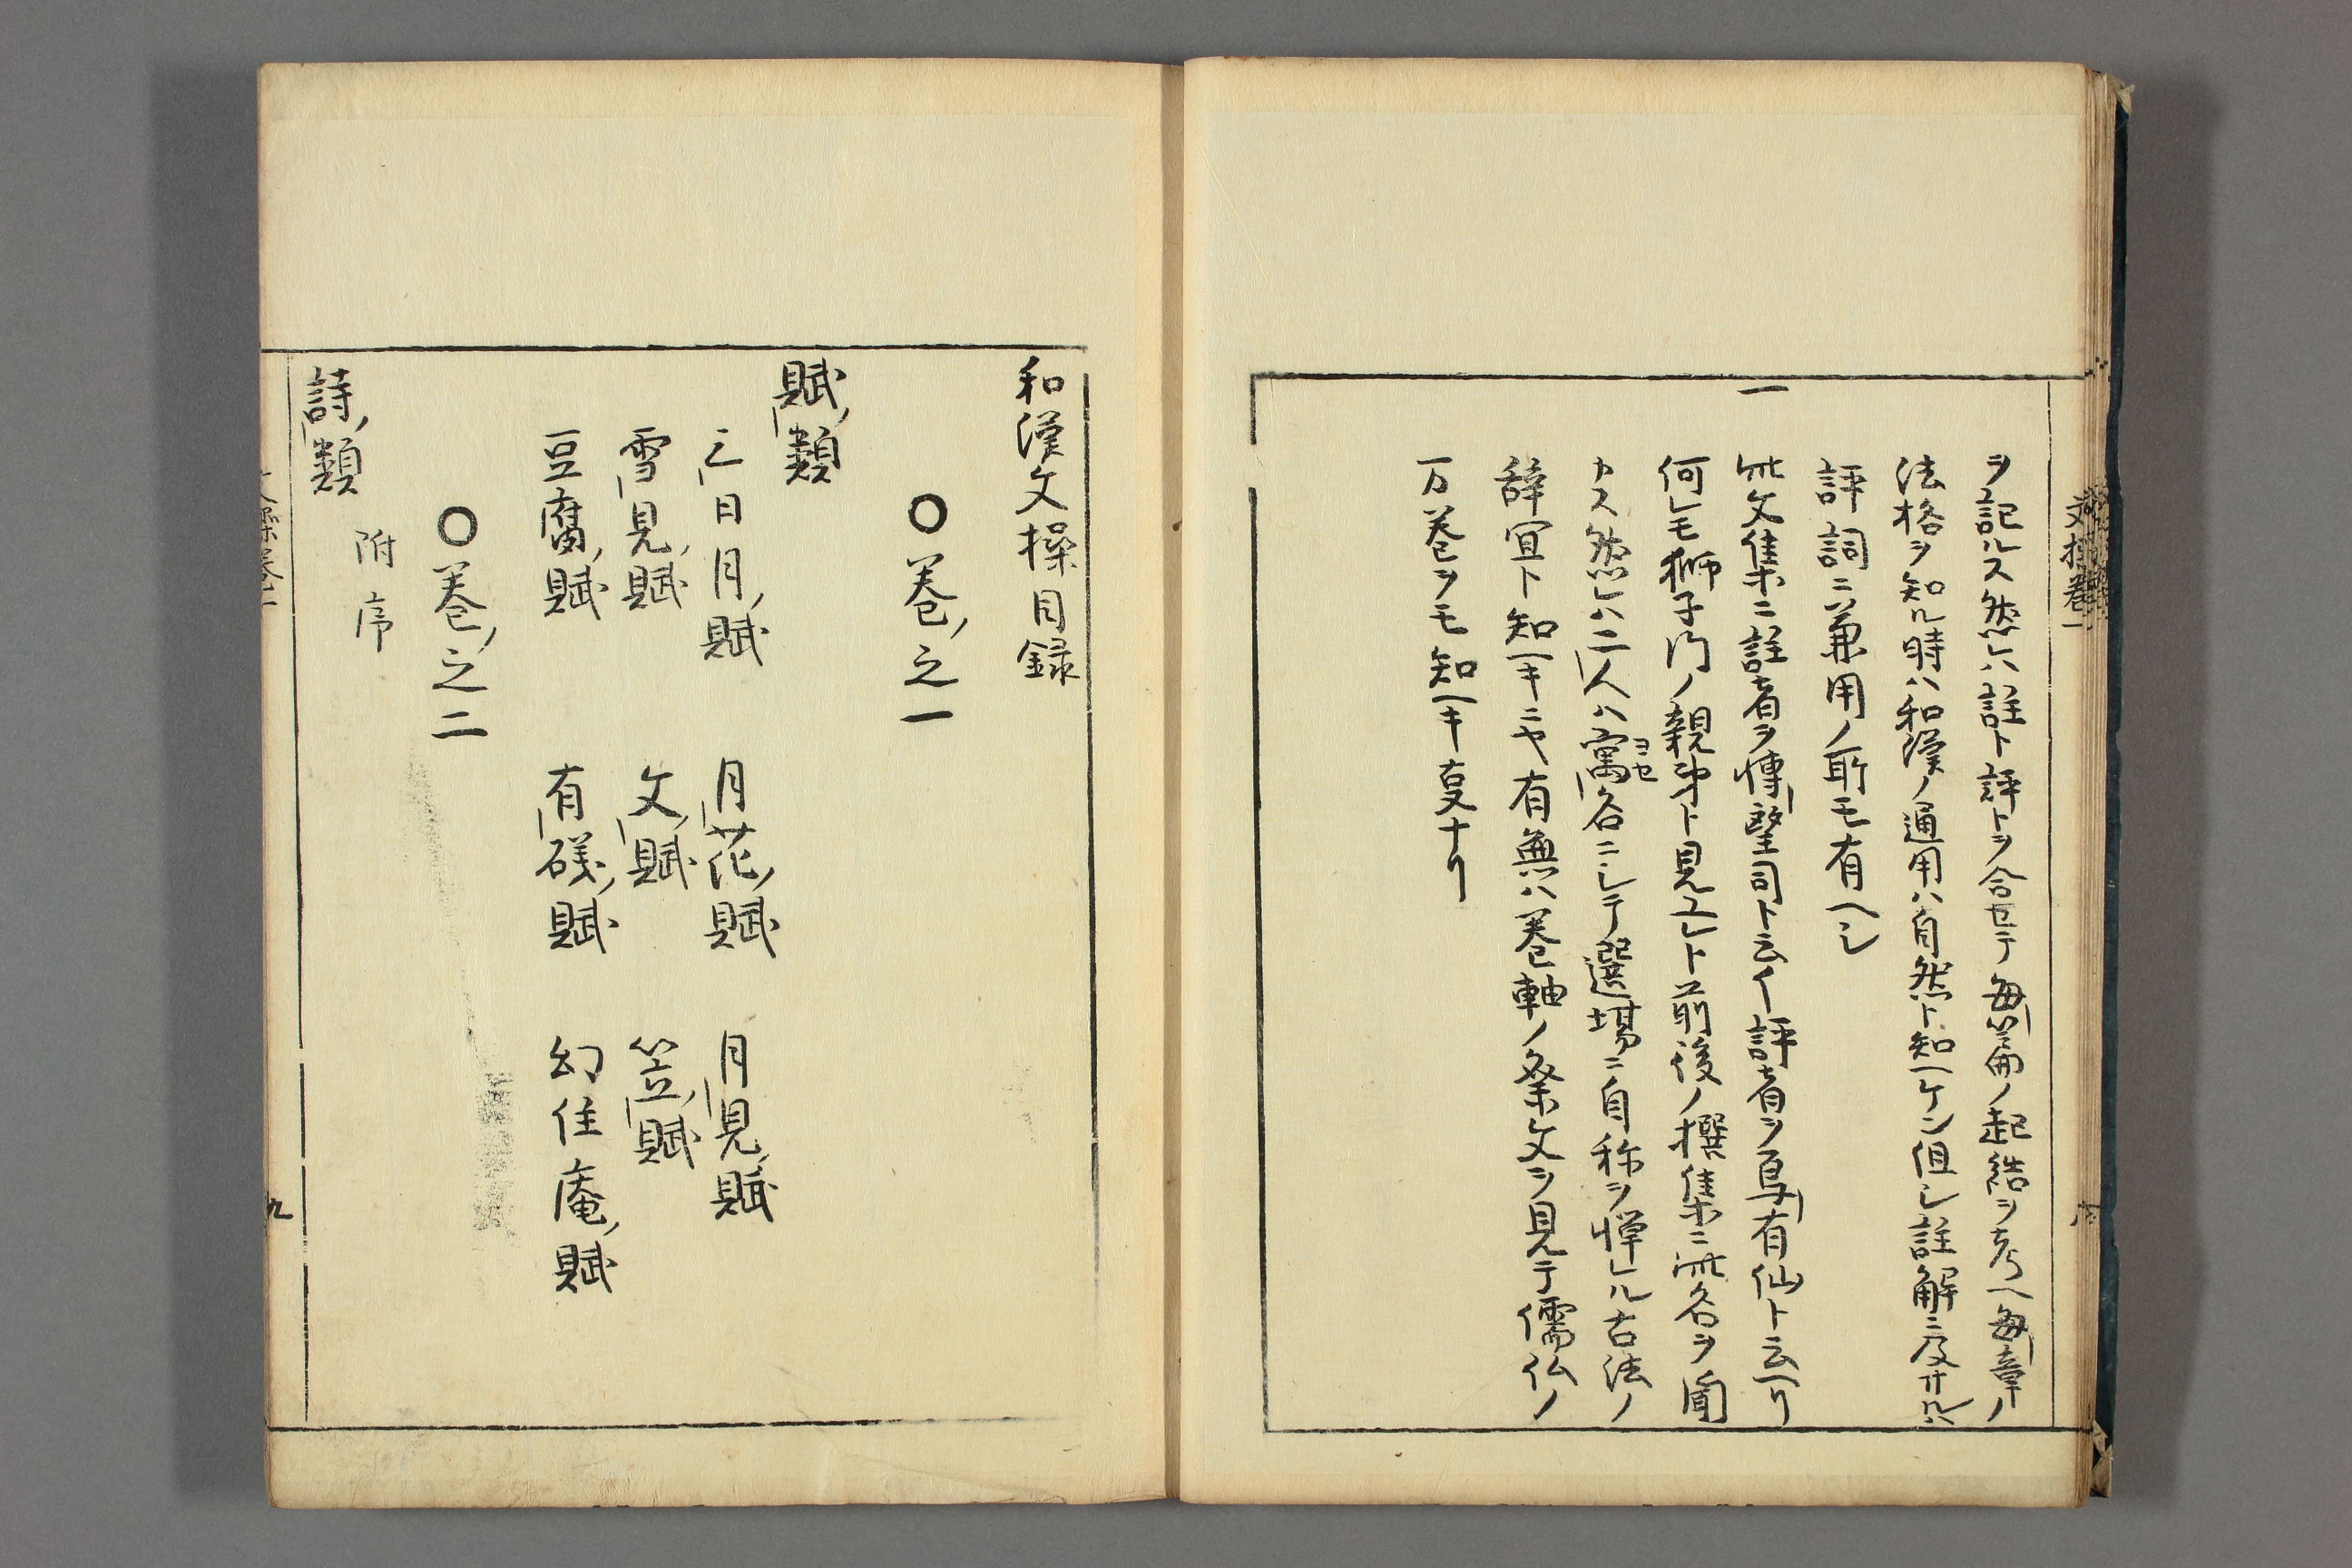 ヲ記ルス然レハ註ト評トヲ合セテ毎篇ノ起結ヲ考ヘ毎章ノ
法格ヲ知ル時ハ和漢ノ通用ハ自然ト知ヘケン但シ註解ニ及サルハ
評詞ニ兼用ノ所モ有ヘシ
一 此文集ニ註者ヲ博望司ト云イ評者ヲ夏有仙ト云ヘリ
何レモ獅子門ノ親弟ト見エレト前後ノ撰集ニ此名ヲ聞
カス然レハ二人ハ寓名ニシテ選場ニ自称ヲ憚レル古法ノ
ヨセ
辞宜ト知ヘキニヤ有無ハ巻軸ノ祭文ヲ見テ儒仏ノ
万巻ヲモ知ヘキ叓ナリ
文操巻一
和漢文操目録
○巻ノ之一
賦ノ類
三日月ノ賦 月花ノ賦 月見ノ賦
雪見ノ賦 文ノ賦 笠ノ賦
豆腐ノ賦 有磯ノ賦 幻住庵ノ賦
○巻ノ之二
附序
詩ノ類
九